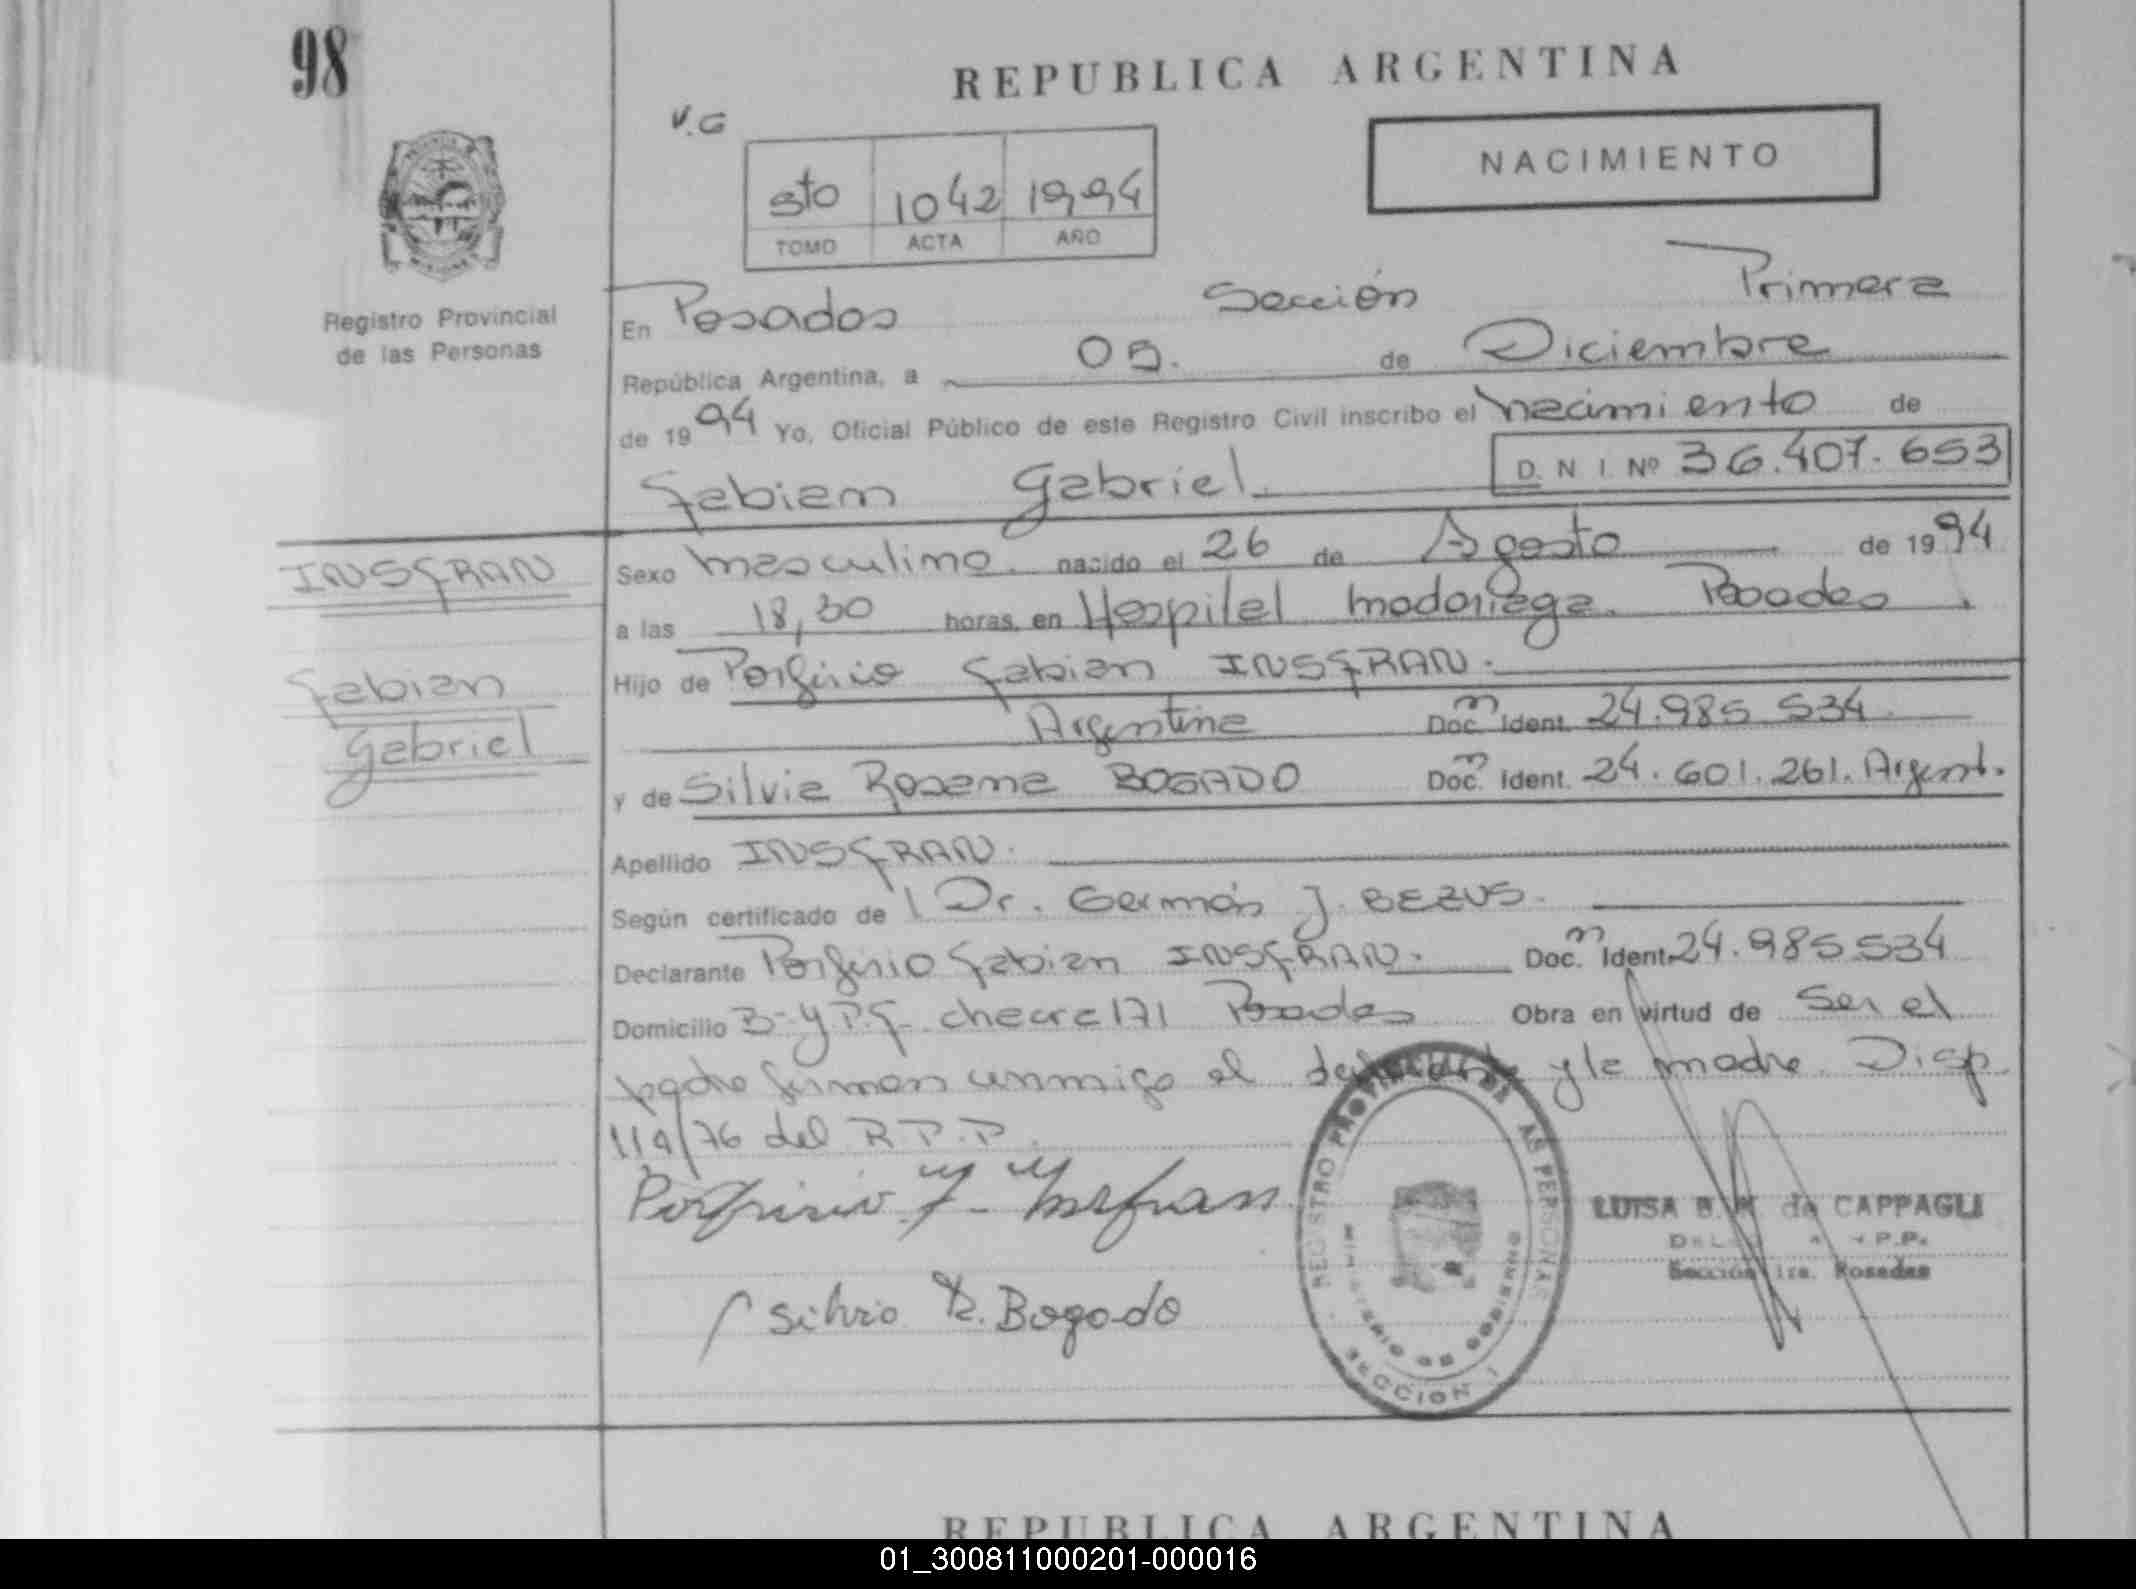 98
REPUBLICA ARGENTINA
V.G
NACIMIENTO
5to 1042 1994
TOMO ACTA AÑO
Registro Provincial
de las Personas
En Posadas Sección Primera
República Argentina, a 05. de Diciembre
de 1994 Yo, Oficial Público de este Registro Civil inscribo el nacimiento de
Fabian Gabriel D. N I. Nº 36.407.653
INSFRAN
Sexo masculino. nacido el 26 de Agosto de 1994
a las 18,30 horas, en Hospital Madariaga. Posadas.
Fabian
Gabriel
Hijo de Porfirio Fabian INSFRAN.
Argentina Doc. Ident. 24.985 534
y de Silvia Rosana BOGADO Doc. Ident. 24.601.261. Argent.
Apellido INSFRAN.
Según certificado de Dr. Germán J. BEZUS.
Declarante Porfirio Fabian INSFRAN. Doc. Ident. 24.985.534
Domicilio Bº y P.F. chacra 171 Posadas Obra en virtud de Ser el
padre firman conmigo el declarante y la madre. Disp
119/76 del R.P.P.
Porfirio F. Insfran
Silvia R. Bogado
REGISTRO PROVINCIAL DE LAS PERSONAS
MINISTERIO DE GOBIERNO
SECCION I
LUISA B. de CAPPAGLI
Sección 1ra. Posadas
REPUBLICA ARGENTINA
01_300811000201-000016